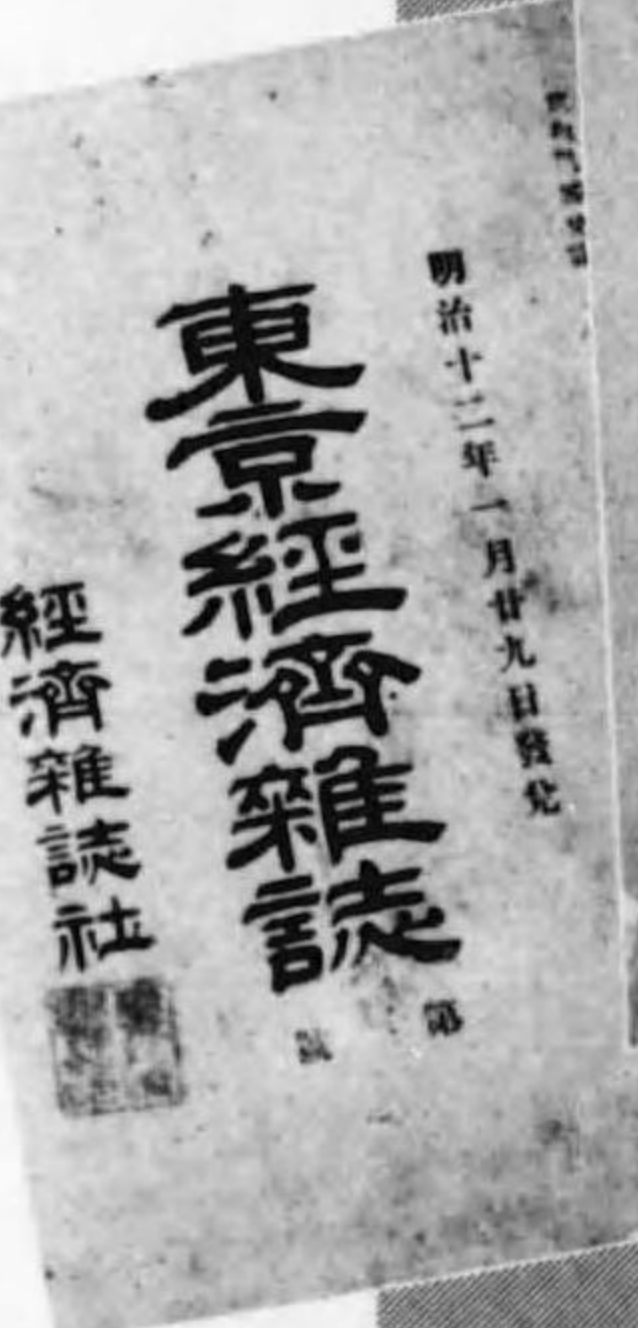 明治十二年一月廿九日發兌
東京經濟雜誌
第
號
經濟雜誌社